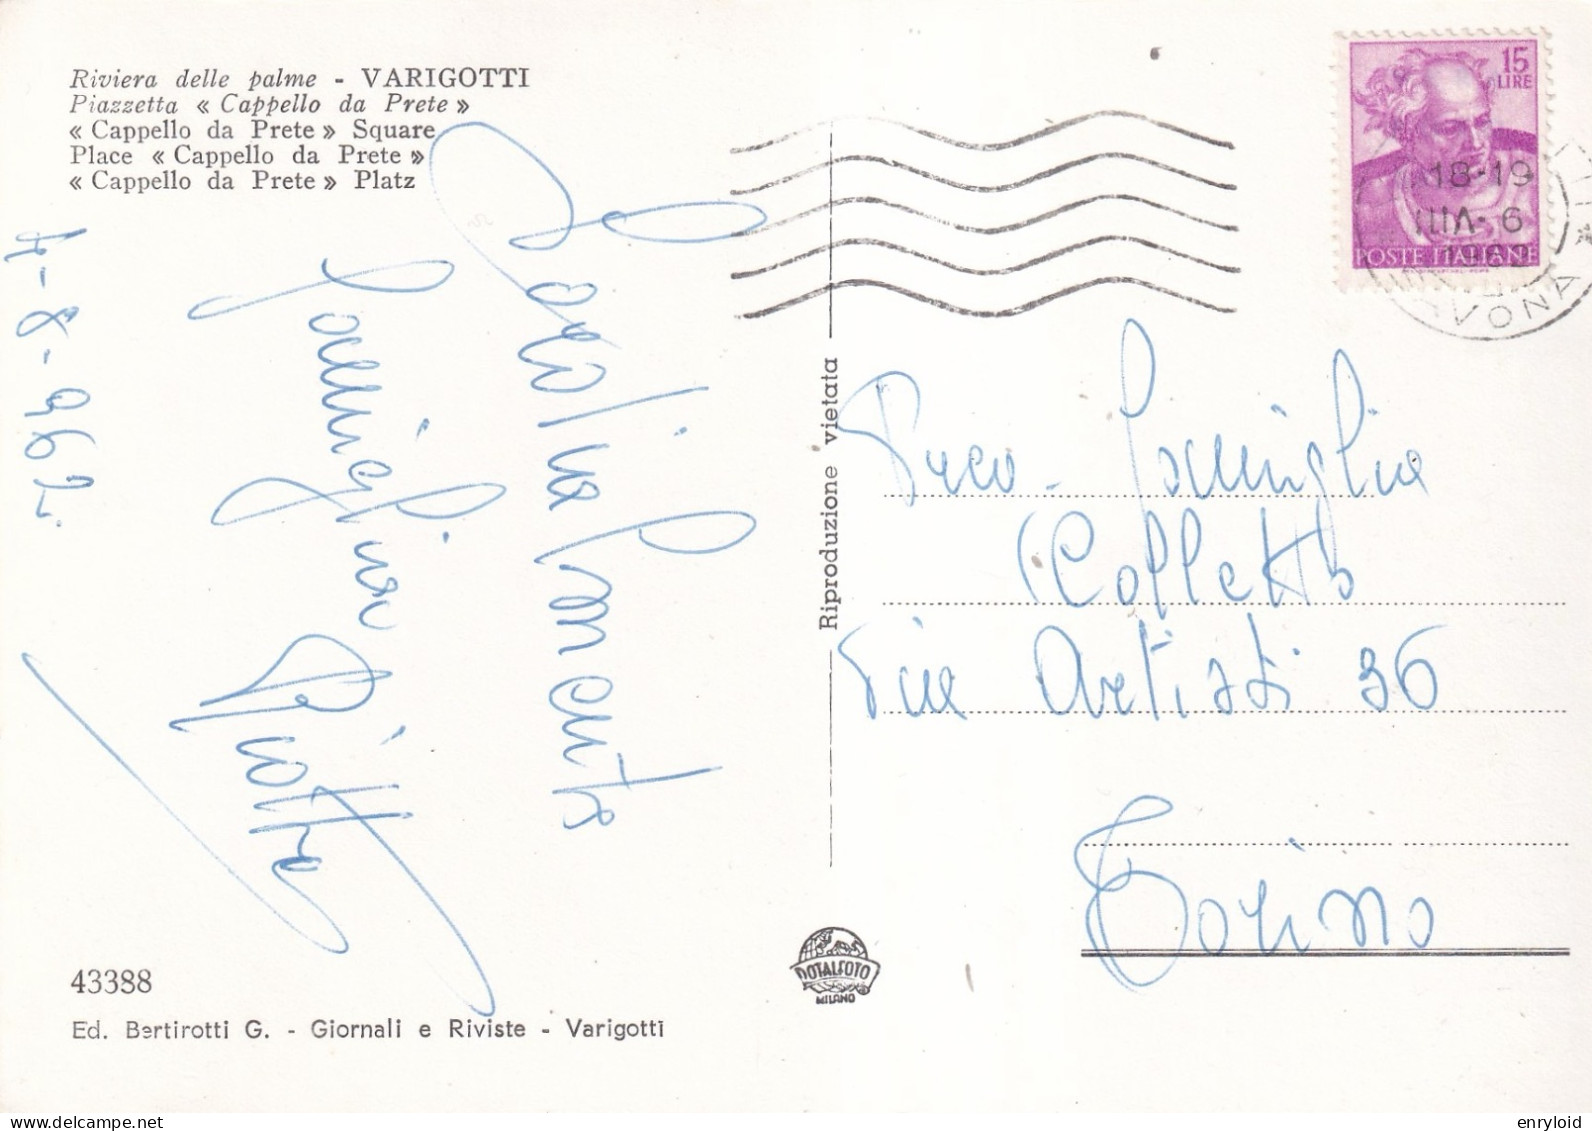 Riviera delle palme - VARIGOTTI
Piazzetta « Cappello da Prete »
« Cappello da Prete » Square
Place « Cappello da Prete »
« Cappello da Prete » Platz
4-8-962.
Cordialmente
Famiglia
Riproduzione vietata
15
LIRE
POSTE ITALIANE
18-19
6·VIII
1962
Famiglia
Colletto
Via Artisti 36
Torino
DOTALFOTO
MILANO
43388
Ed. Bertirotti G. - Giornali e Riviste - Varigotti
delcampe.net
enryloid